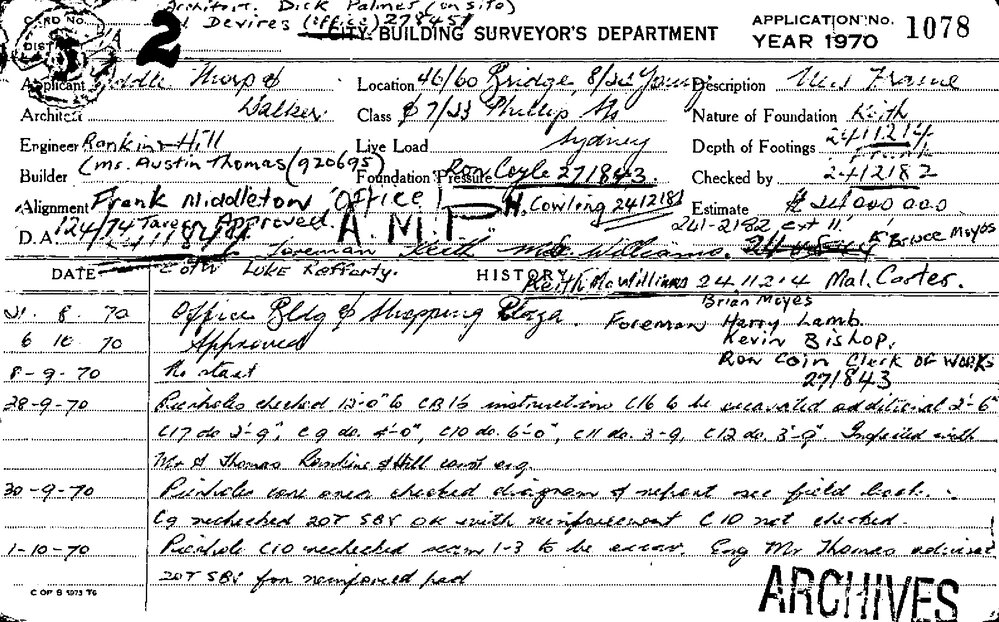 Architect. Dick Palmer (on site)
Devires (office) 278451
CARD NO.
DIST
A
2
CITY BUILDING SURVEYOR'S DEPARTMENT
APPLICATION No. 1078
YEAR 1970
Applicant Thorp &
Walker
Location 46/60 Bridge, 8/ Young
Description Used Frame
Architect
Class & 7/33 Phillip Sts
Sydney
Nature of Foundation Keith
2411214
Engineer Rankin & Hill
Live Load
Depth of Footings
Builder (Mr. Austin Thomas (920695)
Foundation Pressure Ron Coyle 271843.
Checked by 2412182
Alignment Frank Middleton Office
A.M.P.
H. Cowling 2412181
Estimate 000 000
D.A. 124/74 Approved
241-2182 ext 11. Bruce Moyes
Foreman Keith Mc Williams.
DATE
Luke Rafferty.
HISTORY
Keith McWilliams 2411214 Mal. Carter.
Brian Moyes
21. 8. 70 Office Bldg & Shopping Plaza. Foreman Harry Lamb.
6 10 70 Approved
Kevin Bishop.
Ron Coin Clerk of Works
271843
8-9-70 No start
28-9-70 Pierholes checked 12'-0" to CB16 instructions C16 to be excavated additional 2'-6"
C17 do 2'-9", C9 do. 4'-0", C10 do. 6'-0", C11 do. 3-9, C12 do. 3'-9" Inspected with
Mr A Thomas Rankine & Hill const eng.
30-9-70 Pierholes core area checked diagram & report see field book.
C9 rechecked 20T SBV OK with reinforcement C10 not checked.
1-10-70 Pierhole C10 rechecked seam 1-3 to be excav. Eng Mr Thomas advised
20T SBV for reinforced pad
C OF S 1973 T6
ARCHIVES